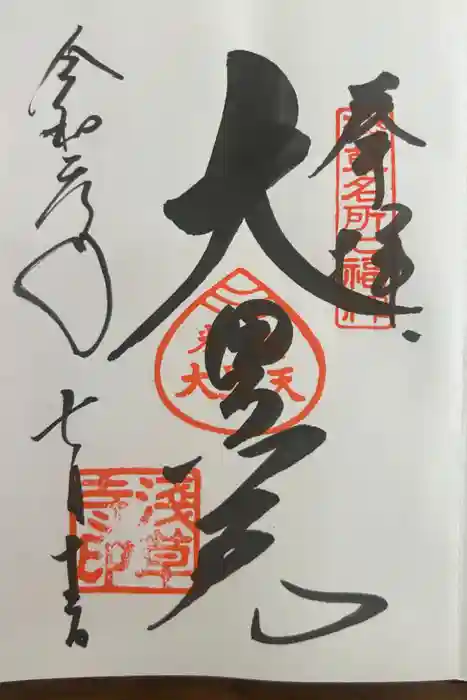 奉拝
浅草名所七福神
大黒天
大黒天
令和二年
七月十日
浅草寺印